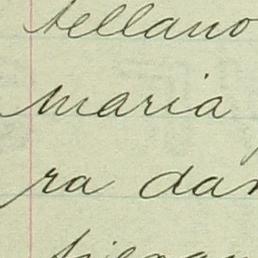 tellano
maria
ra dan